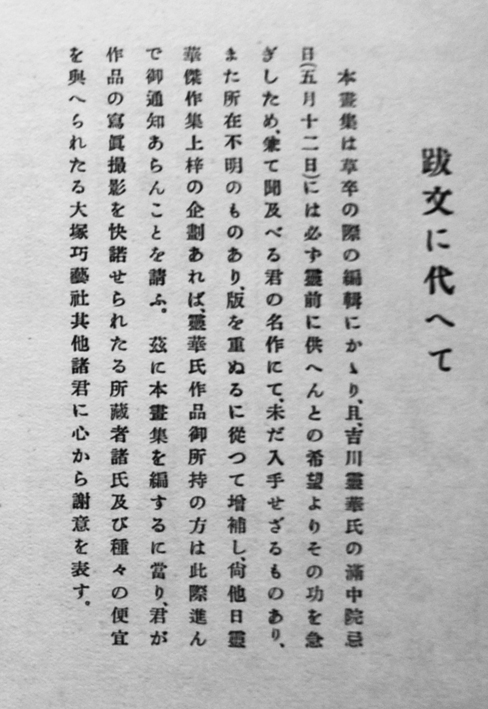 跋文に代へて
本畫集は草卒の際の編輯にかゝり、且、吉川靈華氏の滿中院忌
日(五月十二日)には必ず靈前に供へんとの希望よりその功を急
ぎしため、兼て聞及べる君の名作にて、未だ入手せざるものあり、
また所在不明のものあり、版を重ぬるに從つて增補し、尙他日靈
華傑作集上梓の企劃あれば、靈華氏作品御所持の方は此際進ん
で御通知あらんことを請ふ。 茲に本畫集を編するに當り、君が
作品の寫眞撮影を快諾せられたる所藏者諸氏及び種々の便宜
を與へられたる大塚巧藝社其他諸君に心から謝意を表す。